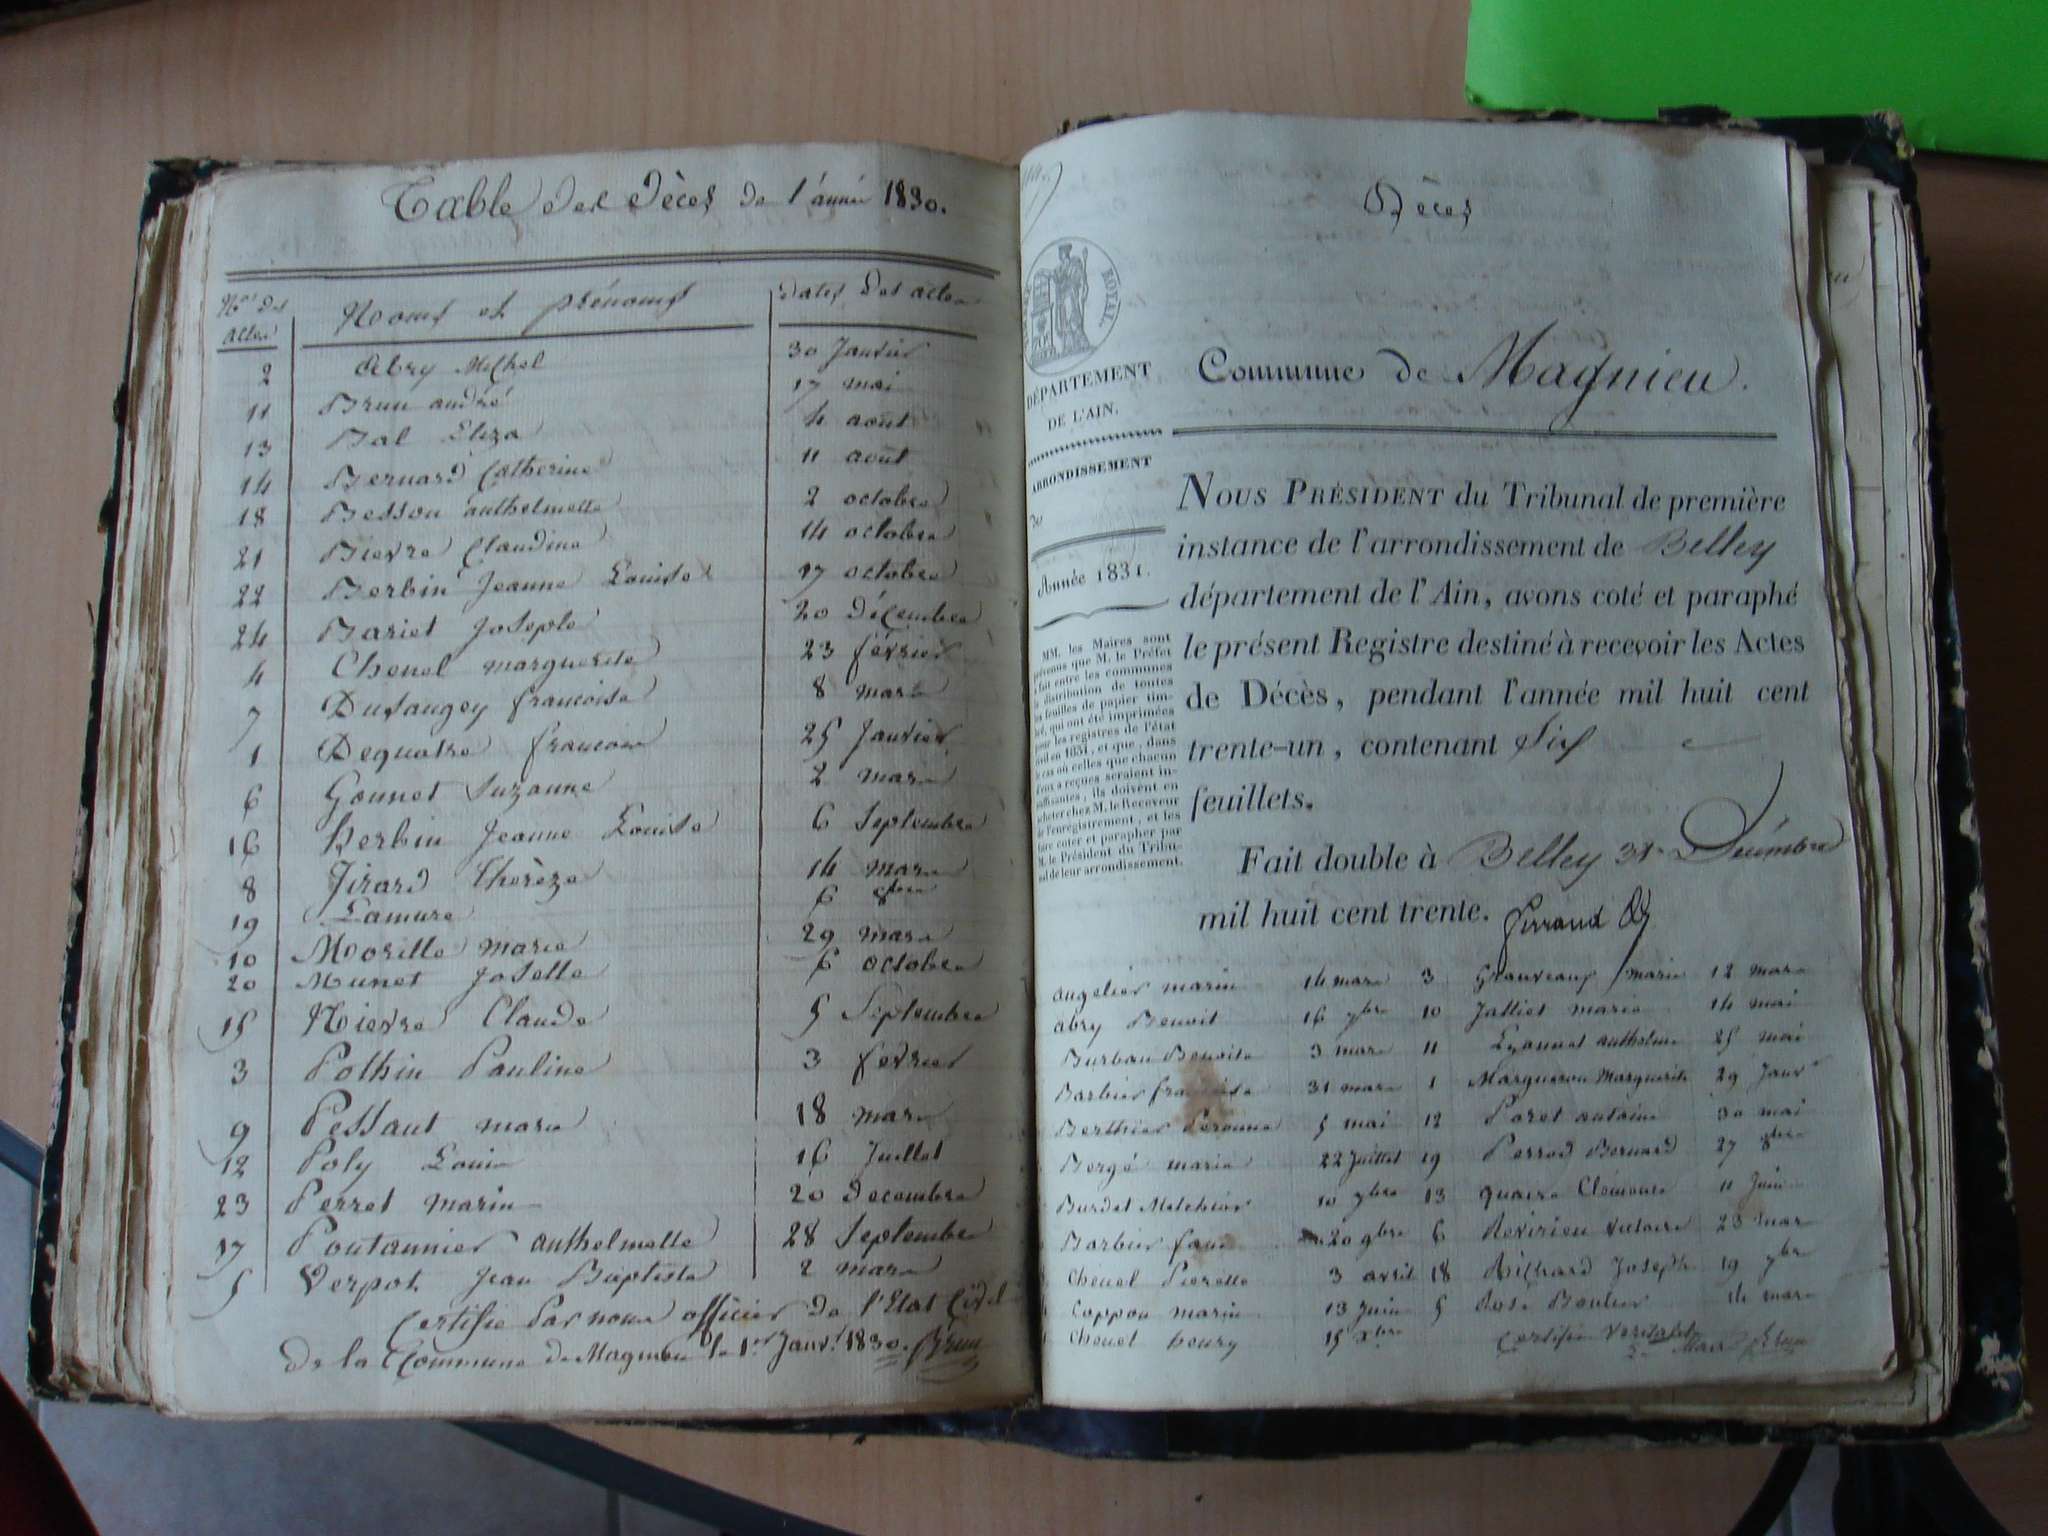 Table des Décès de l'année 1830.
Nos des actes
Noms et prénoms
dates des actes
2 Abry Michel 30 Janvier
11 Brun andré 17 mai
13 Bal Eliza 4 août
14 Bernard Catherine 11 août
18 Besson anthelmette 2 octobre
21 Bievre Claudine 14 octobre
22 Berbin Jeanne Louise 17 octobre
24 Bariet Joseph 20 décembre
4 Chenel marguerite 23 février
7 Dusaugey françoise 8 mars
1 Dequatre francois 25 Janvier
6 Gounet Suzanne 2 mars
16 Herbin Jeanne Louise 6 Septembre
8 Jirard Thérèze 14 mars
19 Lamure 6 8bre
10 Morille marie 29 mars
20 Munet Josette 6 octobre
15 Nievre Claude 5 Septembre
3 Pothin Pauline 3 fevrier
9 Pessaut marie 18 mars
12 Poly Louis 16 Juillet
23 Perret marin 20 decembre
17 Poutannier anthelmette 28 Septembre
5 Verpot Jean Baptiste 2 mars
Certifié Par nous officier de l'Etat Civil
de la Commune de Magnieu le 1er Janv. 1830. Brun
Décès
ROYAL.
DÉPARTEMENT
DE L'AIN.
Commune de Magnieu.
ARRONDISSEMENT
Année 1831.
MM. les Maires sont
prévenus que M. le Préfet
a fait entre les communes
la distribution de toutes
les feuilles de papier tim-
bré, qui ont été imprimées
pour les registres de l'état
civil en 1831, et que, dans
le cas où celles que chacun
d'eux a reçues seraient in-
suffisantes, ils doivent en
acheter chez M. le Receveur
de l'enregistrement, et les
faire coter et parapher par
M. le Président du Tribu-
nal de leur arrondissement.
NOUS PRÉSIDENT du Tribunal de première
instance de l'arrondissement de Belley
département de l'Ain, avons coté et paraphé
le présent Registre destiné à recevoir les Actes
de Décès, pendant l'année mil huit cent
trente-un, contenant Six
feuillets.
Fait double à Belley 31 Décembre
mil huit cent trente.
angelier marin 14 mars 3 Granveaux marie 12 mars
abry Benoit 16 7bre 10 Jalliet marie 14 mai
Burbau Benoite 3 mars 11 Lyonnet anthelme 25 mai
Barbier francoise 31 mars 1 Margueron Marguerite 29 Janvr
Berthier Peronne 5 mai 12 Poret antoine 30 mai
Bergé marie 22 Juillet 19 Perrod Bernard 27 8bre
Burdet Melchior 10 7bre 13 quaire Clémence 11 Juin
Barbier 20 9bre 6 Revirieu victoire 23 mars
Chenel Pierette 3 avril 18 Richard Joseph 19 7bre
Coppon marin 13 Juin 5 Rosé 14 mars
Chenel henry 15 Xbre
Certifié Veritable
Brun